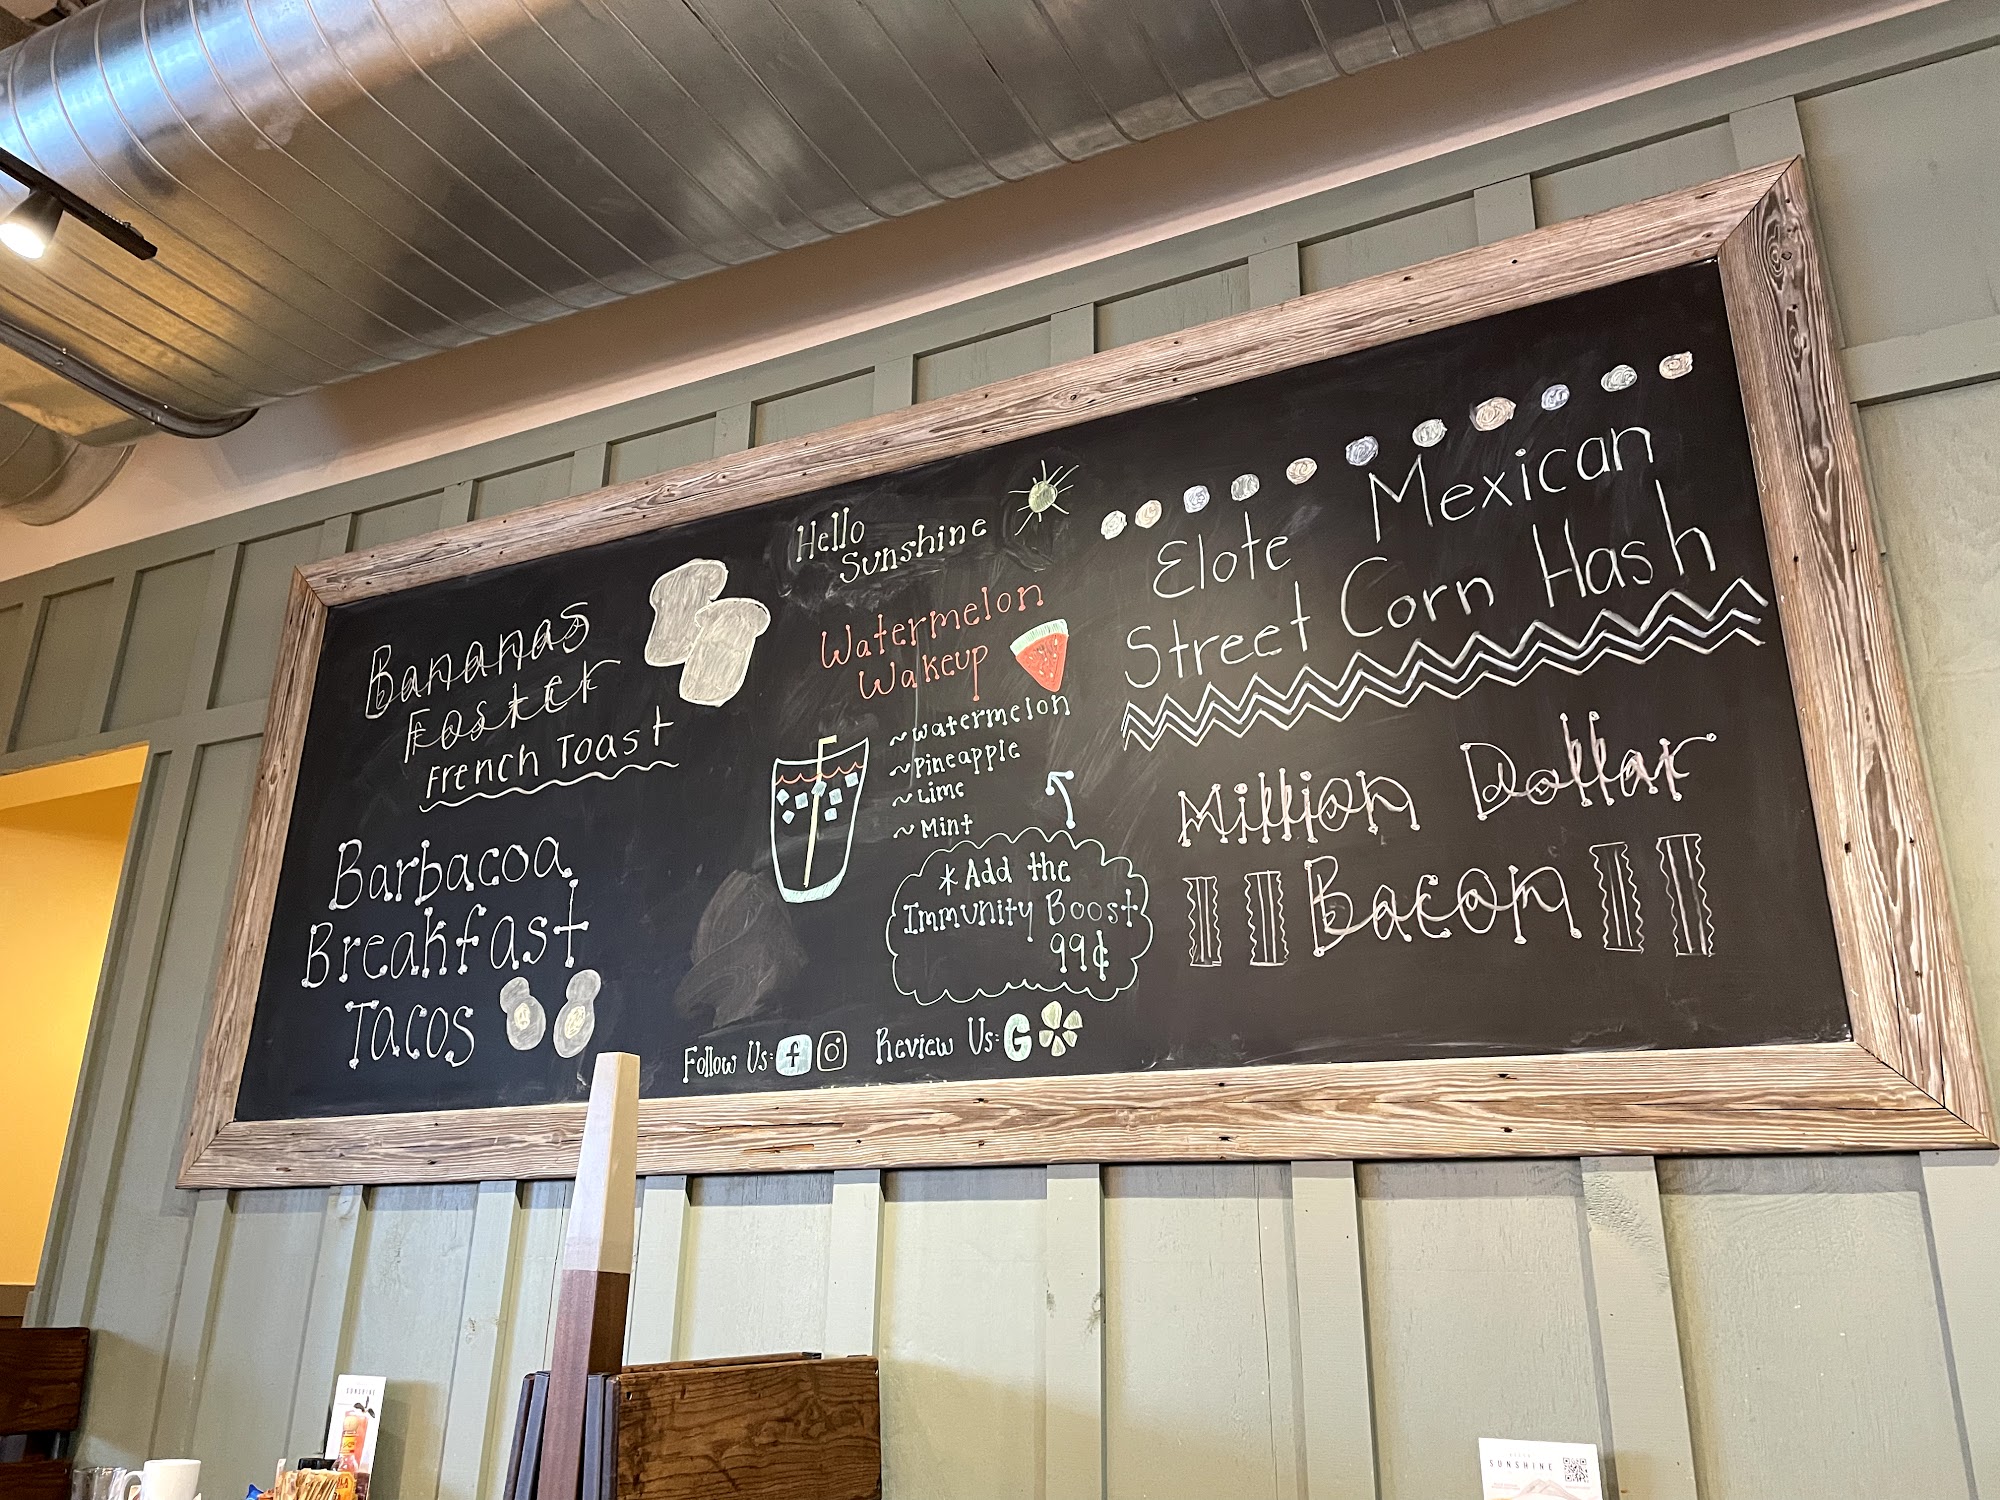 Hello
Sunshine
Bananas
Foster
French Toast
Barbacoa
Breakfast
Tacos
Watermelon
Wakeup
~watermelon
~Pineapple
~Lime
~Mint
*Add the
Immunity Boost
99¢
Follow Us: f
Review Us: G
Elote Mexican
Street Corn Hash
Million Dollar
Bacon
SUNSHINE
SUNSHINE